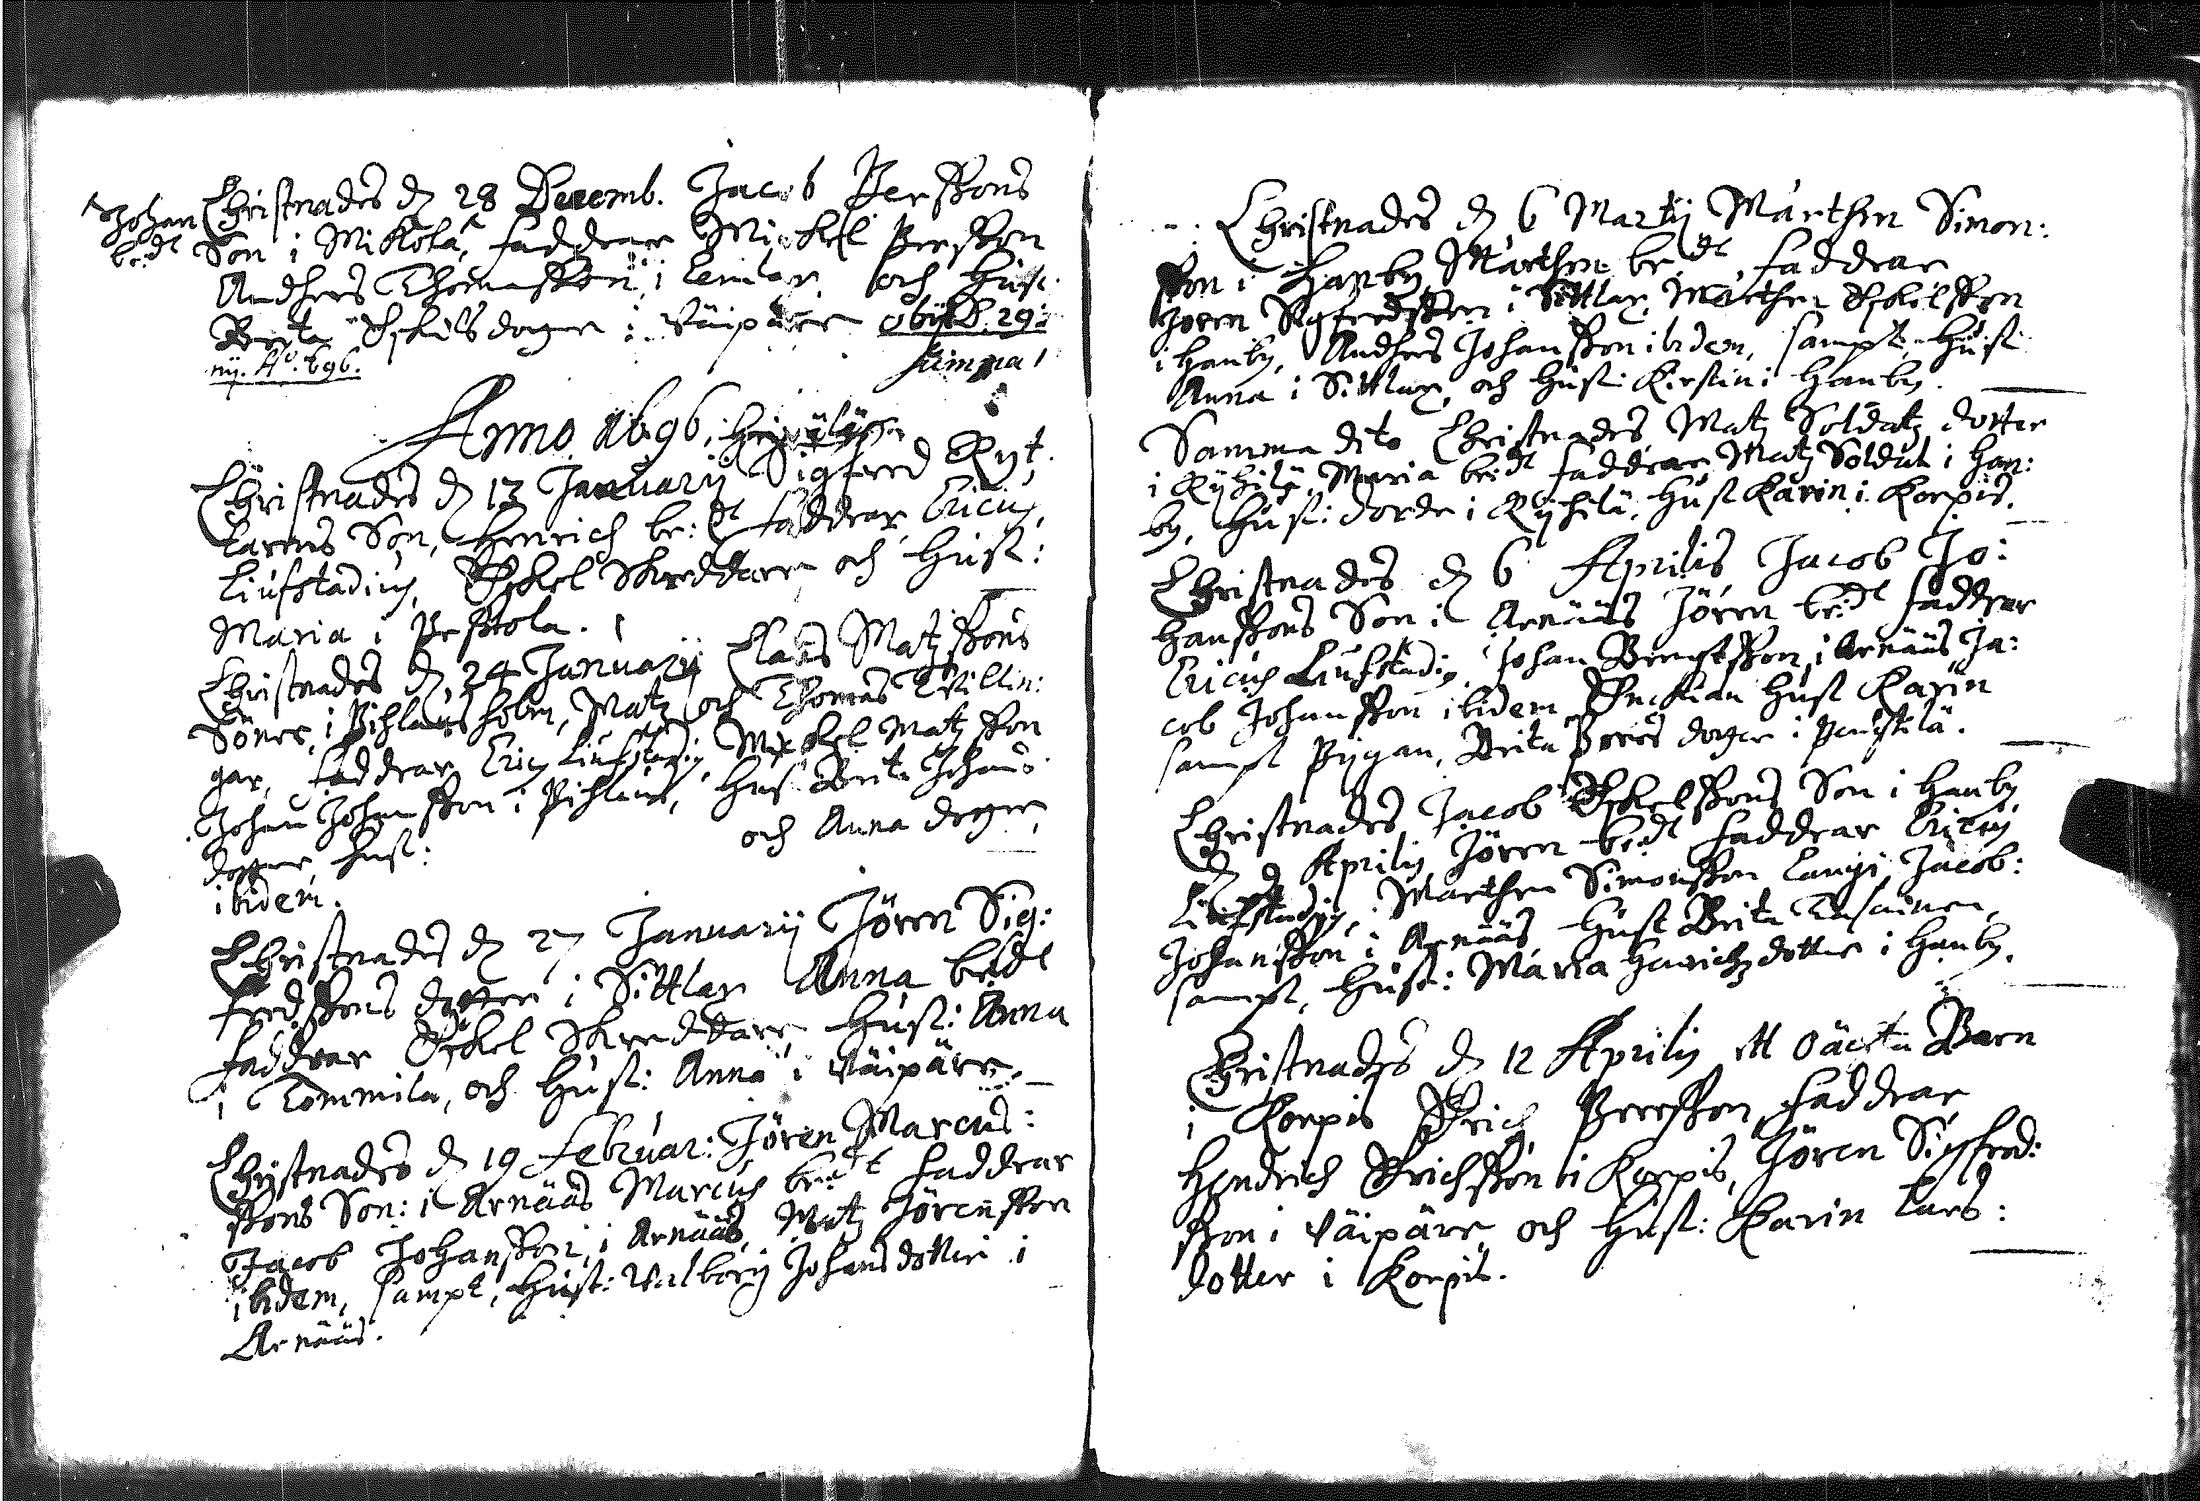 Johan Christnades d. 28 Decemb. Jacob Perssons
be:dt Son i Mikola, faddrar Michel Persson
Andhers Thomasson i Lemlax och Hust.
Brita Eskilsdoger i Väipäre obijt d. 29:
nij. Ao. 696.
Summa 1
Anno 1696, i
Christnades d. 13 Januarij Sigfred Ryt:
tarens Son, Henrich be:dt faddrar, Ericus
Liufstadius, Eskel Skreddare och Hust:
Maria i Peskola. 1
Christnades d. 24 Januarij Clais Matzsons
Söner, i Pihlaisholm, Matz och Thomas Tvillin:
gar, faddrar Eric Liufstadi, Michel Matzson
Johan Johansson i Pihlais, Hus Brita Johans
dotter, Hust: och Anna doger
ibidem.
Christnades d. 27 Januarij Jören Sig:
fredssons dotter i Sittlax Anna be:dt
faddrar Eskel Skreddare, Hust: Anna
i Tommila, och Hust: Anna i Väipäre.
Christnades d. 19 Februar: Jören Marcus:
sons Son: i Arnääs Marcus be:dt faddrar
Jacob Johansson, i Arnääs, Matz Jörensson
ibidem, sampt, Hust: Valborg Johansdotter i
Arnääs.
Christnades d. 6 Martij Marthen Simon:
son i Hanby, Marthen be:dt, faddrar
Joren Sigfredsson i Sittlax, Marthen Eskelsson
i Hanby, Andhers Johansson ibidem, sampt, Hust
Anna i Sittlax, och Hust: Kirstin i Hanby.
Samma dito Christnades Matz Soldatz dotter
i Kyhilä, Maria be:dt faddrar Matz Soldat i Han:
by, Hust: dorde i Kyhilä, Hust Karin i Korpis.
Christnades d. 6 Aprilis Jacob Jo:
hanssons Son i Arnääs Jören be:dt faddrar
Ericus Liufstadi, Johan Bengtsson, i Arnääs Ja:
cob Johansson ibidem Enckian Hust Karin
sampt Pijgan, Brita doger i
Christnades Jacob Eskelssons Son i Hanby
d. 9 Aprilis Jören be:dt faddrar Ericus
Liufstadij, Marthen Simonsson Langi, Jacob:
Johansson i Arnääs Hust Brita
sampt, Hust: Maria Henrichzdotter i Hanby.
Christnades d. 12 Aprilis ett oächta Barn
i Korpis Erich Persson, faddrar
Hendrich Erichsson i Korpis, Jören Sigfred:
son i Väipäre och Hust: Karin Lars:
dotter i Korpis.